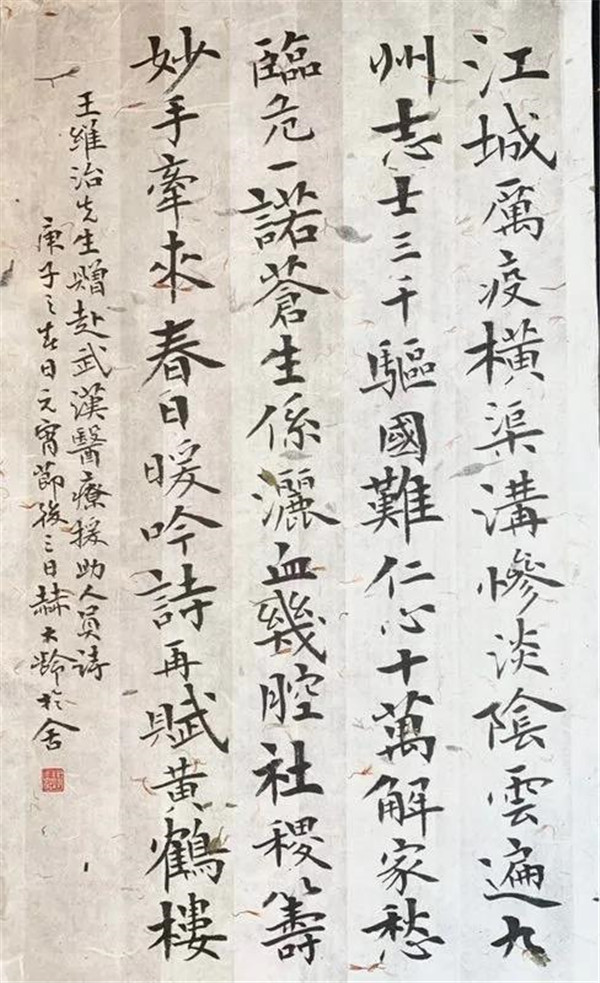 江城厲疫橫渠溝慘淡陰雲遍九
州志士三千驅國難仁心十萬解家愁
臨危一諾蒼生係灑血幾腔社稷籌
妙手牽來春日暖吟詩再賦黃鶴樓
王維治先生贈赴武漢醫療援助人員詩
庚子之春日元宵節後三日赫大齡於舍